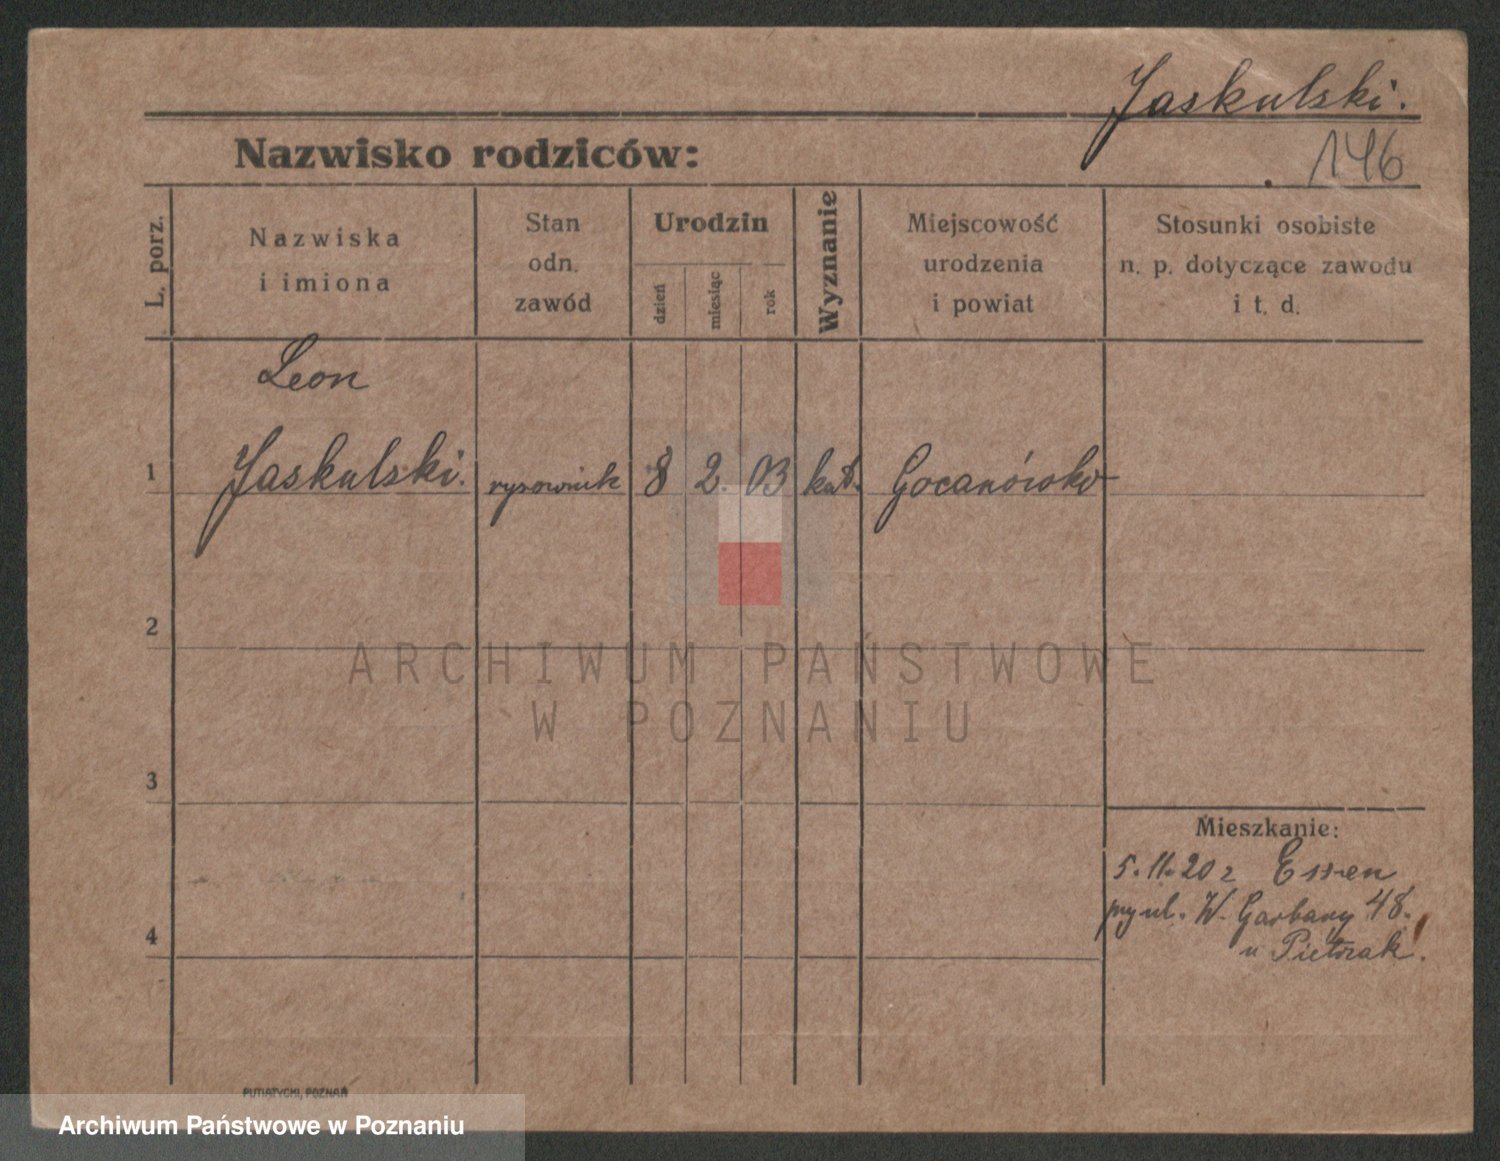 Jaskulski.
Nazwisko rodziców:
146
L. porz.
Nazwiska
i imiona
Stan
odn.
zawód
Urodzin
dzień
miesiąc
rok
Wyznanie
Miejscowość
urodzenia
i powiat
Stosunki osobiste
n. p. dotyczące zawodu
i t. d.
Leon
1 Jaskulski. rysownik 8 2. 03 kat.
2
ARCHIWUM PAŃSTWOWE
W POZNANIU
3
Mieszkanie:
5.11.20 z Essen
ul. W. Garbary 48.
4
u Pietrzak.
PUTIATYCKI, POZNAŃ
Archiwum Państwowe w Poznaniu